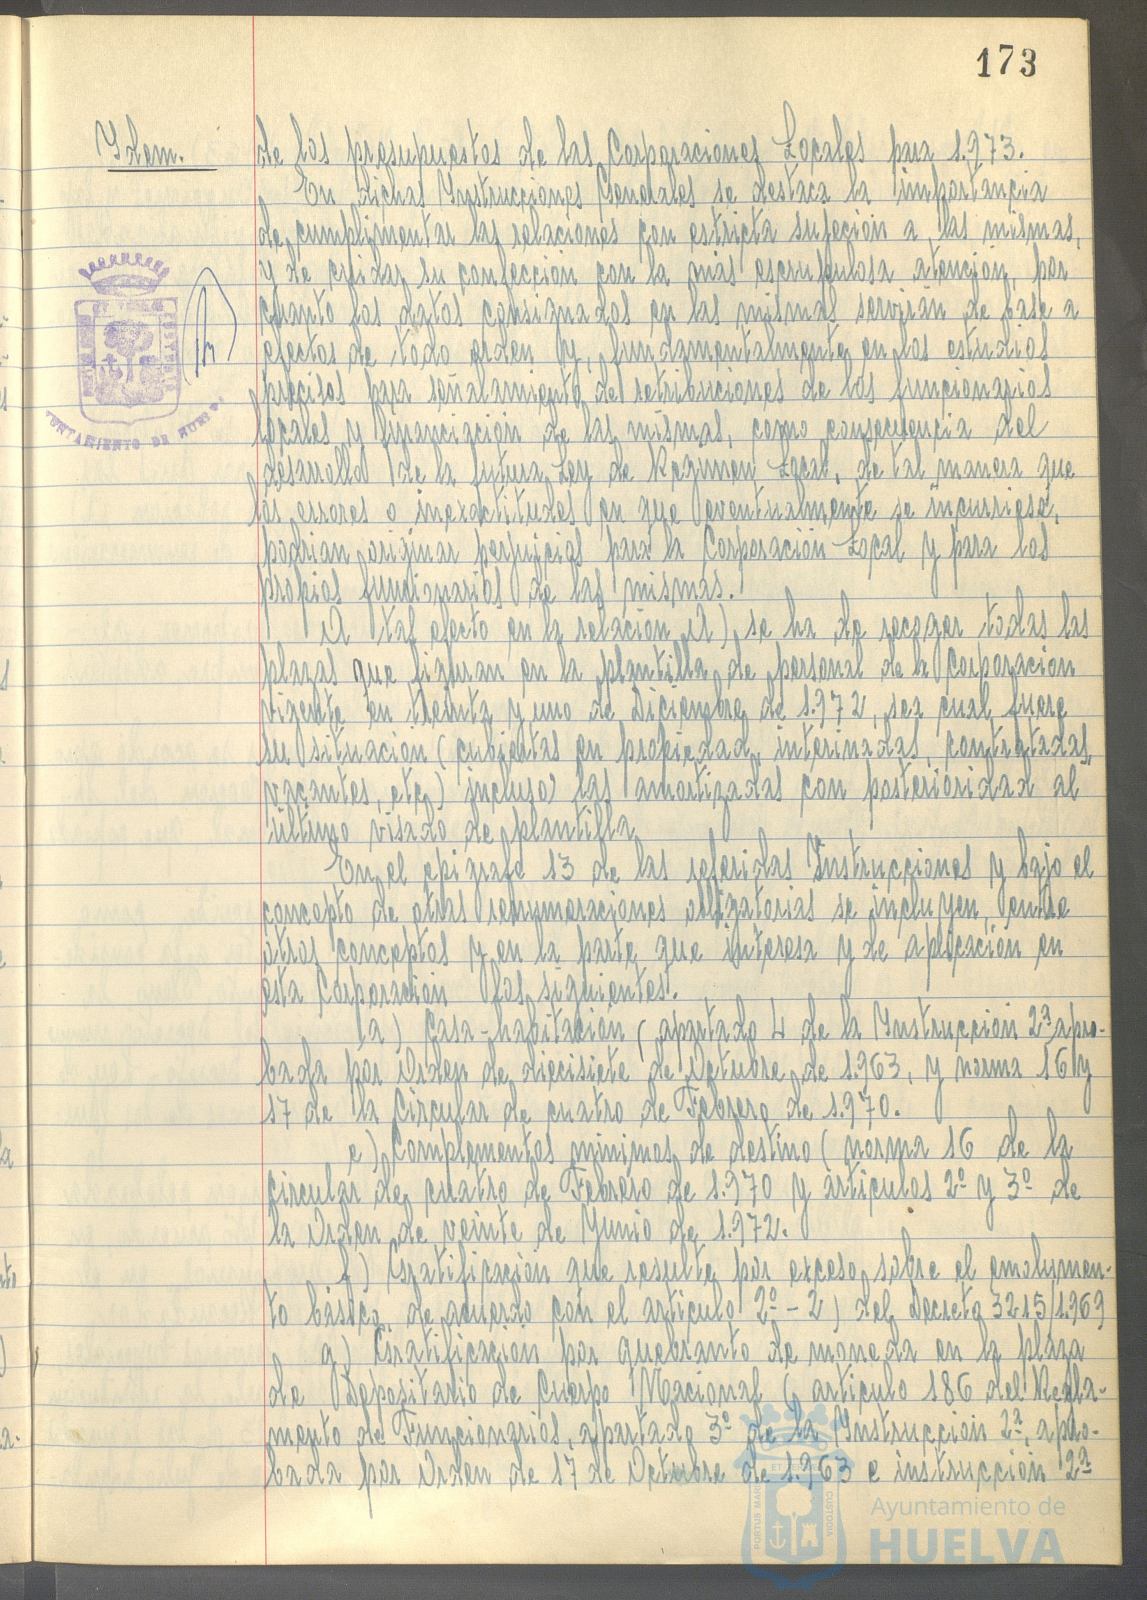 173
Idem.
de los presupuestos de las Corporaciones Locales para 1.973.
En dichas Instrucciones Generales se destaca la importancia
de cumplimentar las relaciones con estricta sujeción a las mismas,
y de cuidar su confección con la más escrupulosa atención, por
cuanto los datos consignados en las mismas servirán de base a
efectos de todo orden y, fundamentalmente, en los estudios
precisos para señalamiento de retribuciones de los funcionarios
locales y financiación de las mismas, como consecuencia del
desarrollo de la futura Ley de Régimen Local, de tal manera que
los errores o inexactitudes en que eventualmente se incurriese,
podrían originar perjuicios para la Corporación Local y para los
propios funcionarios de las mismas.
A tal efecto en la relación A), se ha de recoger todas las
plazas que figuran en la plantilla de personal de la Corporación
vigente en treinta y uno de Diciembre de 1.972, sea cual fuere
su situación (cubiertas en propiedad, interinadas, contratadas,
vacantes, etc.) incluso las amortizadas con posterioridad al
último visado de plantilla
En el epígrafe 13 de las referidas Instrucciones y bajo el
concepto de otras remuneraciones obligatorias se incluyen, entre
otros conceptos y en la parte que interesa y de aplicación en
esta Corporación los siguientes:
a) Casa-habitación (apartado 4 de la Instrucción 2ª apro-
bada por Orden de diecisiete de Octubre de 1.963, y norma 16 y
17 de la Circular de cuatro de Febrero de 1.970.
e) Complementos mínimos de destino (norma 16 de la
Circular de cuatro de Febrero de 1.970 y artículos 2º y 3º de
la Orden de veinte de Junio de 1.972.
f) Gratificación que resulte por exceso sobre el emolumen-
to básico, de acuerdo con el artículo 2º-2) del Decreto 3215/1.969
g) Gratificación por quebranto de moneda en la plaza
de Depositario de Cuerpo Nacional (artículo 186 del Regla-
mento de Funcionarios, apartado 3º de la Instrucción 2ª, apro-
bada por Orden de 17 de Octubre de 1.963 e instrucción 2ª
Ayuntamiento de
HUELVA